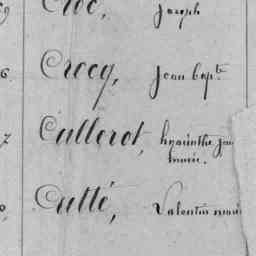 Croc, Joseph
6. Crocq, Jean bapte
7 Cullerot, hyacinthe jean
marie.
Cutté, Valentin marie